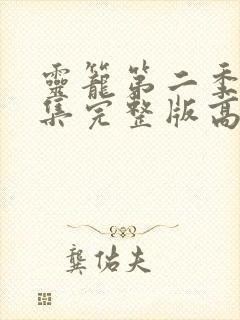 靈籠第二季
集完整版高
龔佑夫